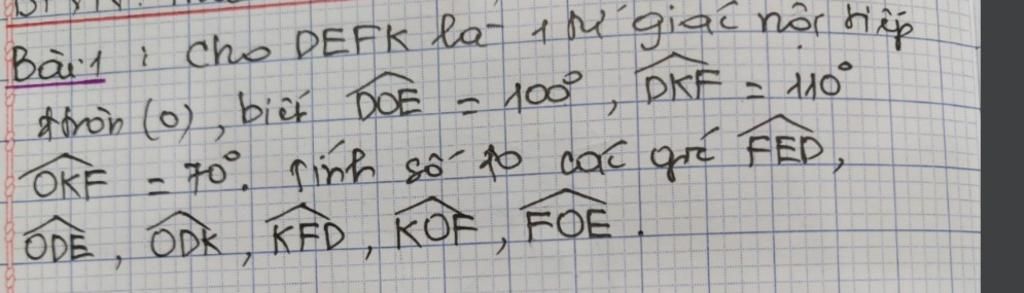 Bài 1 : Cho DEFK là 1 tứ giác nội tiếp
đtròn (O), biết DOE = 100°, DKF = 110°
OKF = 70°. Tính số đo các góc FED,
ODE, ODK, KFD, KOF, FOE.